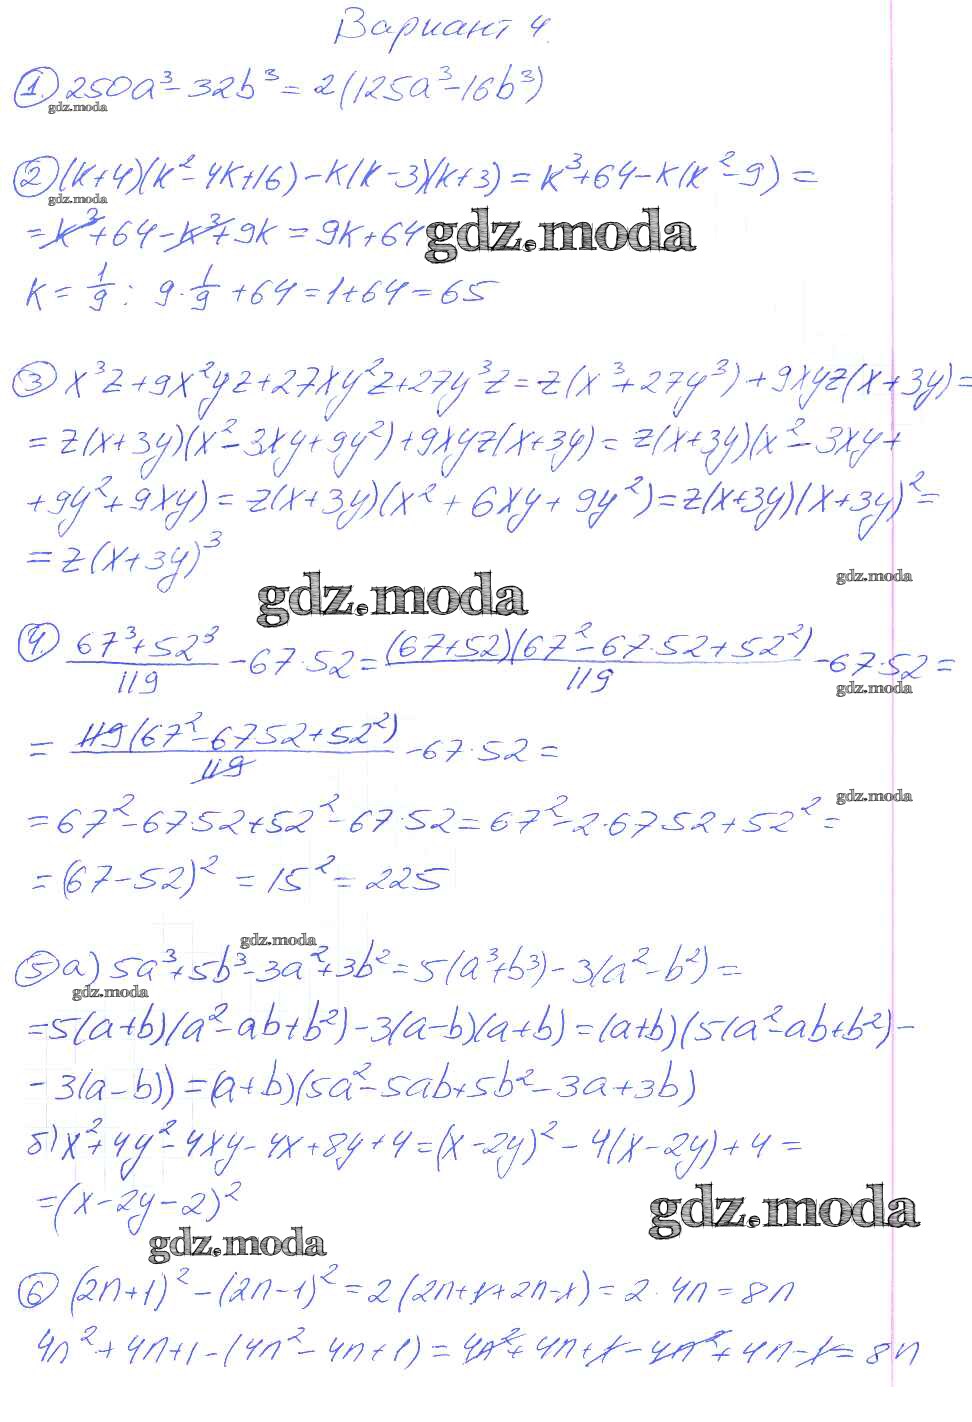 Вариант 4.
① 250a³ - 32b³ = 2(125a³ - 16b³)
gdz.moda
② (k+4)(k² - 4k + 16) - k(k-3)(k+3) = k³ + 64 - k(k² - 9) =
gdz.moda
= k³ + 64 - k³ + 9k = 9k + 64
gdz.moda
k = 1/9 : 9 · 1/9 + 64 = 1 + 64 = 65
③ x³z + 9x²yz + 27xy²z + 27y³z = z(x³ + 27y³) + 9xyz(x + 3y) =
= z(x+3y)(x² - 3xy + 9y²) + 9xyz(x+3y) = z(x+3y)(x² - 3xy +
+ 9y² + 9xy) = z(x+3y)(x² + 6xy + 9y²) = z(x+3y)(x+3y)² =
= z(x+3y)³
gdz.moda
gdz.moda
④ (67³ + 52³)/119 - 67·52 = (67+52)(67² - 67·52 + 52²)/119 - 67·52 =
gdz.moda
= 119(67² - 6752 + 52²)/119 - 67·52 =
gdz.moda
= 67² - 67·52 + 52² - 67·52 = 67² - 2·6752 + 52² =
= (67 - 52)² = 15² = 225
gdz.moda
⑤ a) 5a³ + 5b³ - 3a² + 3b² = 5(a³ + b³) - 3(a² - b²) =
gdz.moda
= 5(a+b)(a² - ab + b²) - 3(a-b)(a+b) = (a+b)(5(a² - ab + b²) -
- 3(a-b)) = (a+b)(5a² - 5ab + 5b² - 3a + 3b)
б) x² + 4y² - 4xy - 4x + 8y + 4 = (x - 2y)² - 4(x - 2y) + 4 =
= (x - 2y - 2)²
gdz.moda
gdz.moda
⑥ (2n+1)² - (2n-1)² = 2(2n+1+2n-1) = 2·4n = 8n
4n² + 4n + 1 - (4n² - 4n + 1) = 4n² + 4n + 1 - 4n² + 4n - 1 = 8n